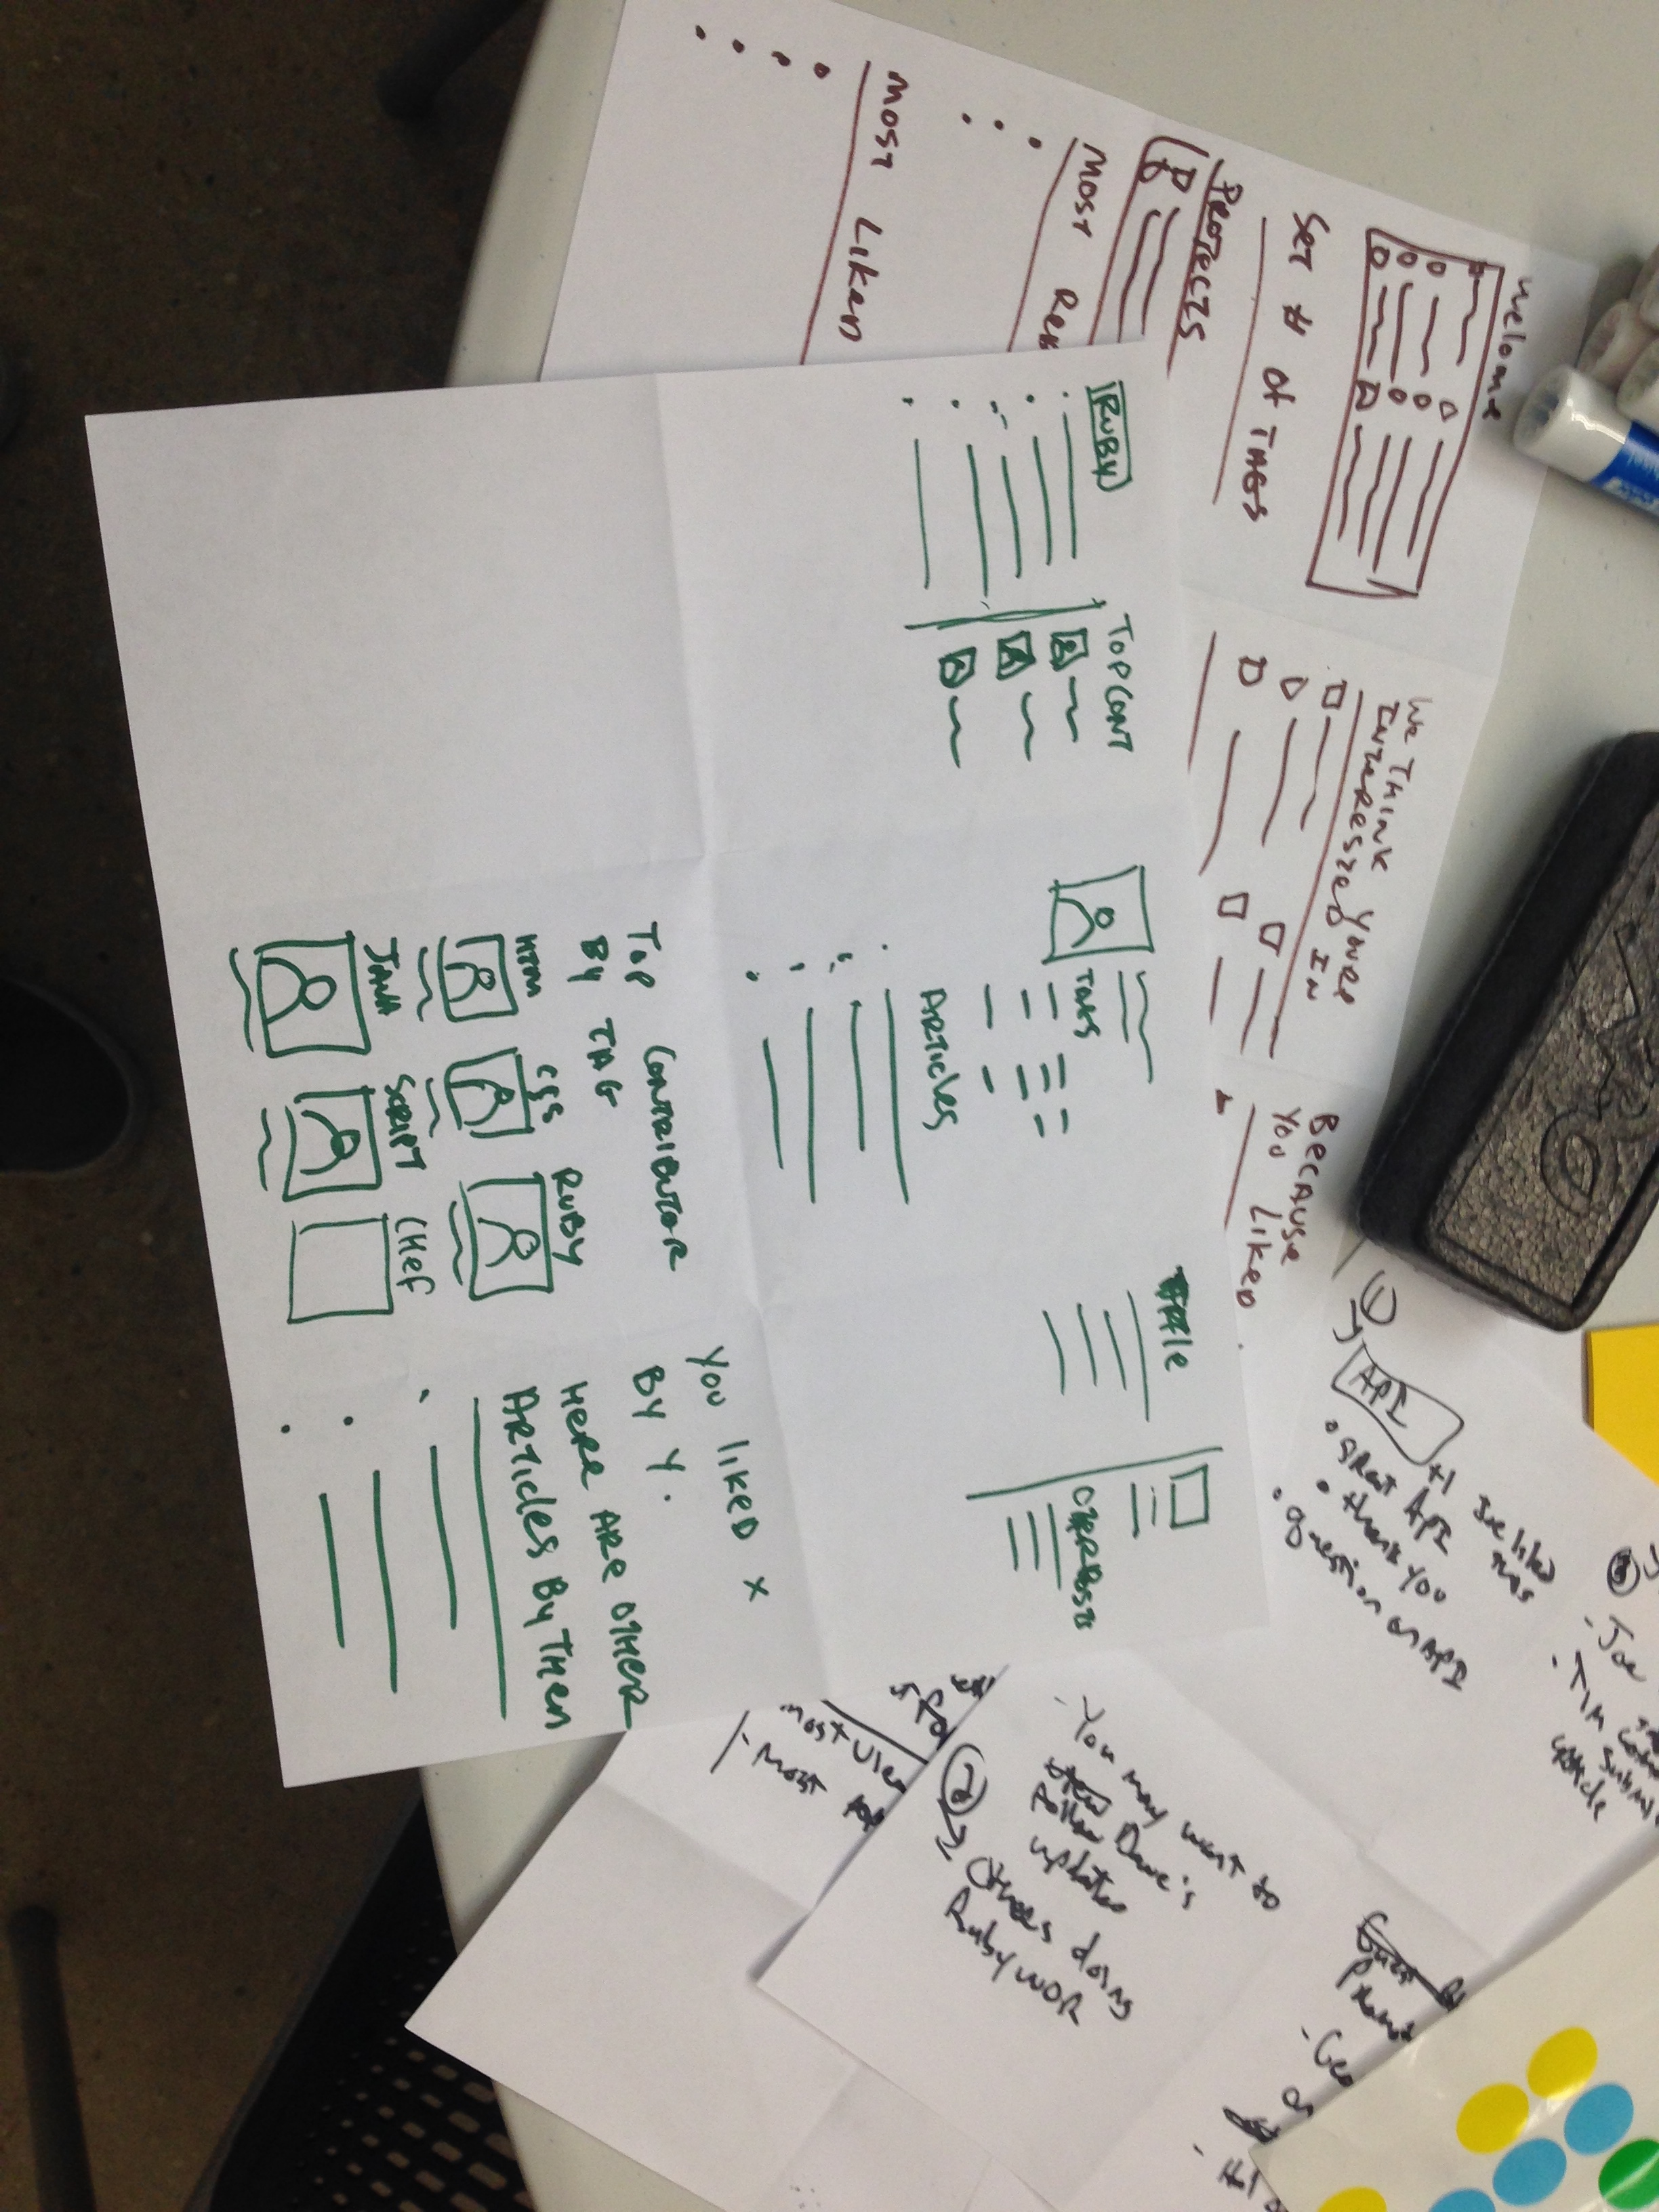 Welome
SET # OF TAGS
PROJECTS
MOST
MOST LIKED
WE THINK YOURE
INTERESTED IN
BECAUSE
YOU LIKED
RUBY
TOP CONT
TAGS
ARTICLES
TITLE
OTHER POSTS
TOP CONTRIBUTOR
BY TAG
HTM
CSS
RUBY
JAVA
SCRIPT
CHEF
YOU LIKED X
BY Y.
HERE ARE OTHER
ARTICLES BY THEM
1
API
+1 Joe liked
this
• great API
• thank you
• question on API
- Joe
- Tim
submi
article
- You may want to
follow Dave's
updates
2
Others doing
Ruby WOR
most used
- most